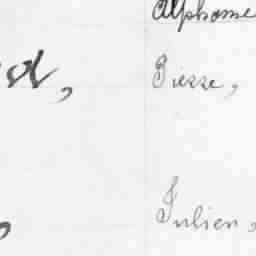 Alphonse
Pierre,
Julien,